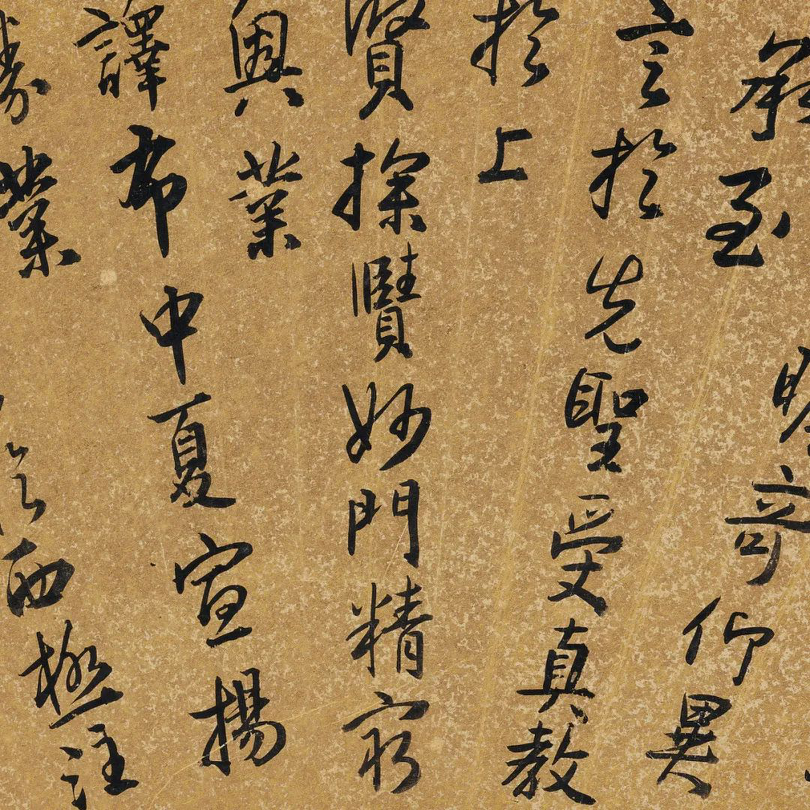 瞻奇仰異
承至
言於先聖受真教
於上
賢探賾妙門精窮
奧業
譯布中夏宣揚
勝業
於西極注